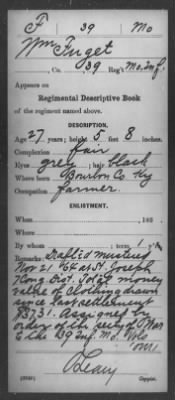 F 39 Mo
Wm Fuget
, Co. , 39 Reg't Mo. Inf.
Appears on
Regimental Descriptive Book
of the regiment named above.
DESCRIPTION.
Age 27 years; height 5 feet 8 inches.
Complexion fair
Eyes grey; hair black
Where born Bourbon Co. Ky
Occupation farmer
ENLISTMENT.
When , 186 .
Where
By whom ; term 1 y'rs.
Remarks: Drafted mustered
Nov 21 '64 at St. Joseph
7 Cong Dist. Total money
value of clothing drawn
since last settlement
$37.31. Assigned by
order of the Secty of War
to the 39 Inf. Mo. Vols
O. Leary
Copyist.